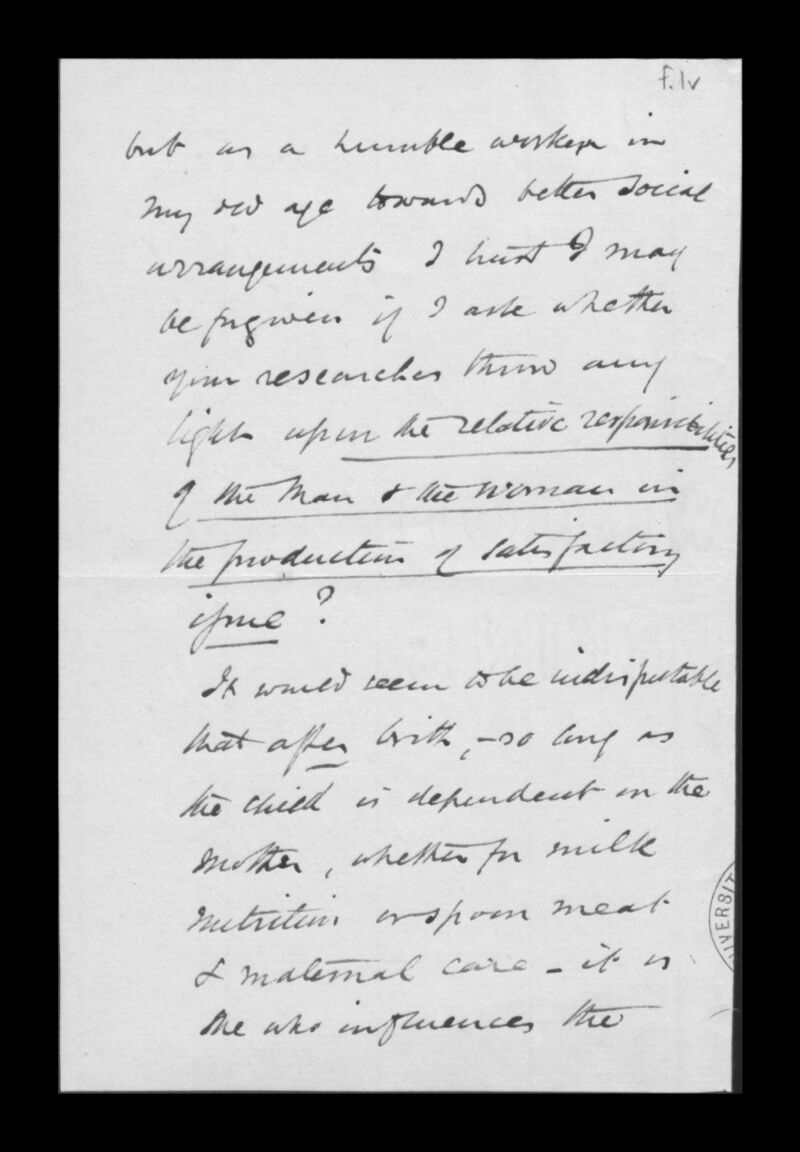 f.1v
but as a humble worker in
my old age towards better social
arrangements I trust I may
be forgiven if I ask whether
your researches throw any
light upon the relative responsibilities
of the Man & the Woman in
the production of satisfactory
issue?
It would seem to be indisputable
that after birth, – so long as
the child is dependent on the
Mother, whether for milk
nutrition or spoon meat
& maternal care – it is
she who influences the
IVERSIT